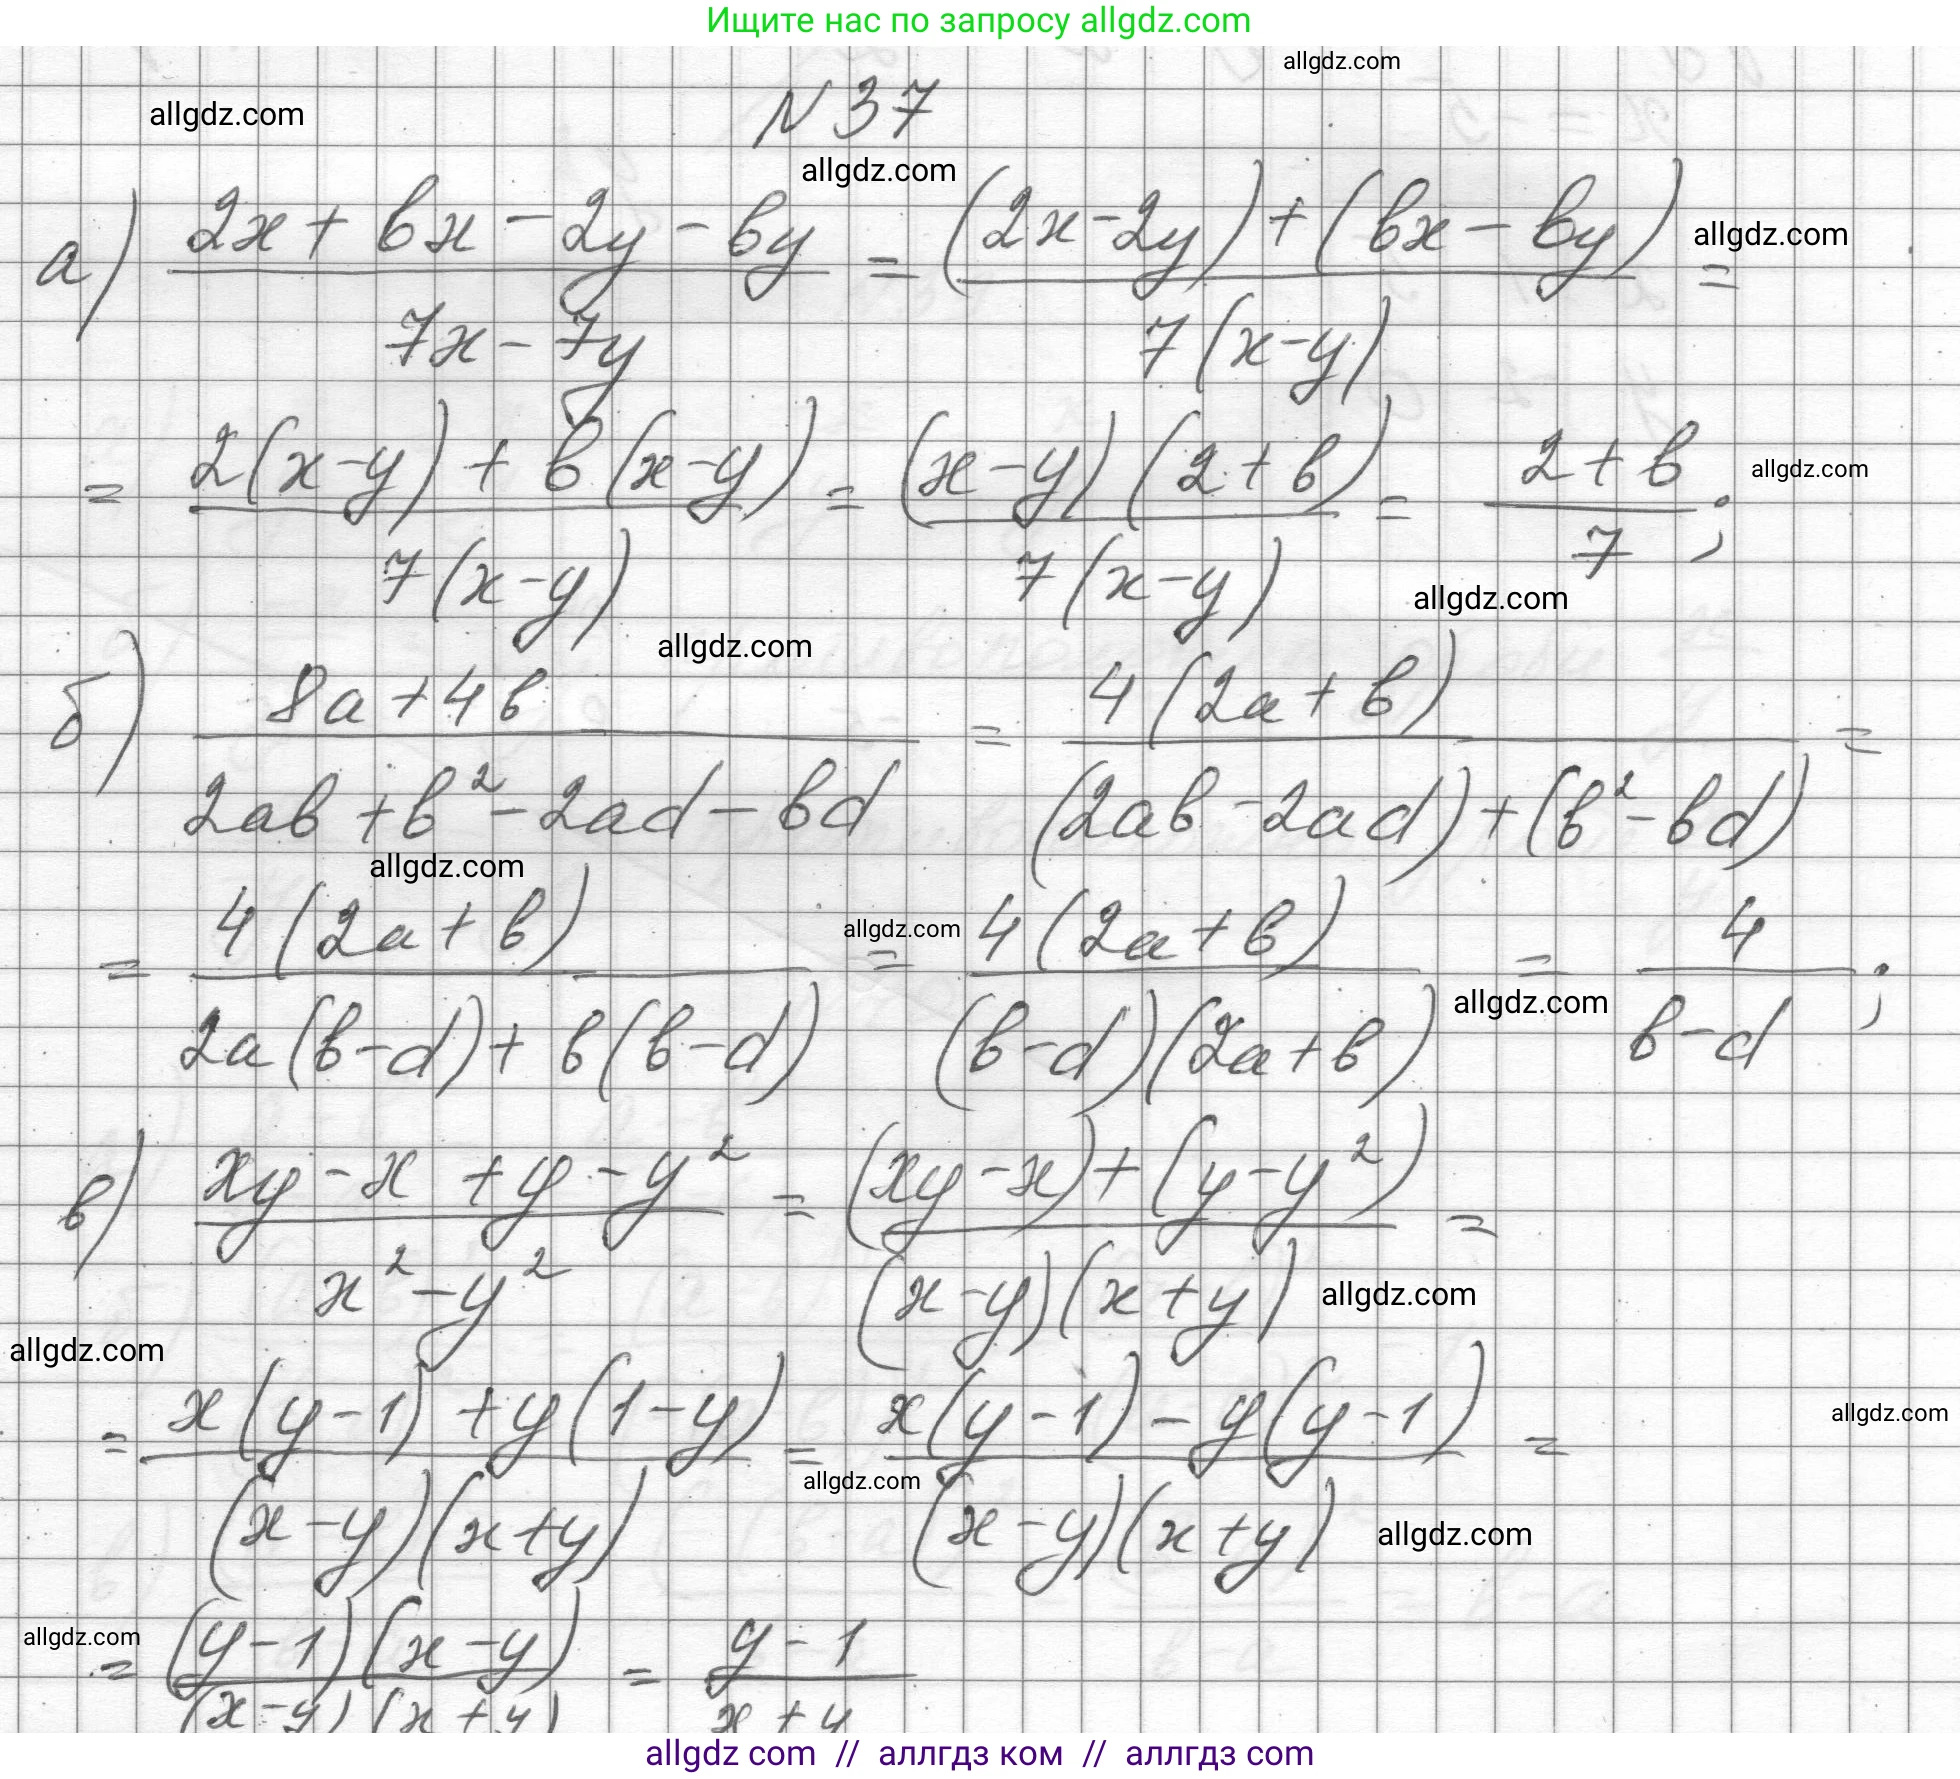 Ищите нас по запросу allgdz.com
allgdz.com
allgdz.com
N 37
allgdz.com
а) (2x + bx - 2y - by)/(7x - 7y) = ((2x - 2y) + (bx - by))/(7(x - y)) =
allgdz.com
= (2(x - y) + b(x - y))/(7(x - y)) = ((x - y)(2 + b))/(7(x - y)) = (2 + b)/7 ;
allgdz.com
allgdz.com
allgdz.com
б) (8a + 4b)/(2ab + b² - 2ad - bd) = (4(2a + b))/((2ab - 2ad) + (b² - bd)) =
allgdz.com
= (4(2a + b))/(2a(b - d) + b(b - d)) = (4(2a + b))/((b - d)(2a + b)) = 4/(b - d) ;
allgdz.com
allgdz.com
в) (xy - x + y - y²)/(x² - y²) = ((xy - x) + (y - y²))/((x - y)(x + y)) =
allgdz.com
allgdz.com
= (x(y - 1) + y(1 - y))/((x - y)(x + y)) = (x(y - 1) - y(y - 1))/((x - y)(x + y)) =
allgdz.com
allgdz.com
allgdz.com
allgdz.com
= ((y - 1)(x - y))/((x - y)(x + y)) = (y - 1)/(x + y)
allgdz com // аллгдз ком // аллгдз com